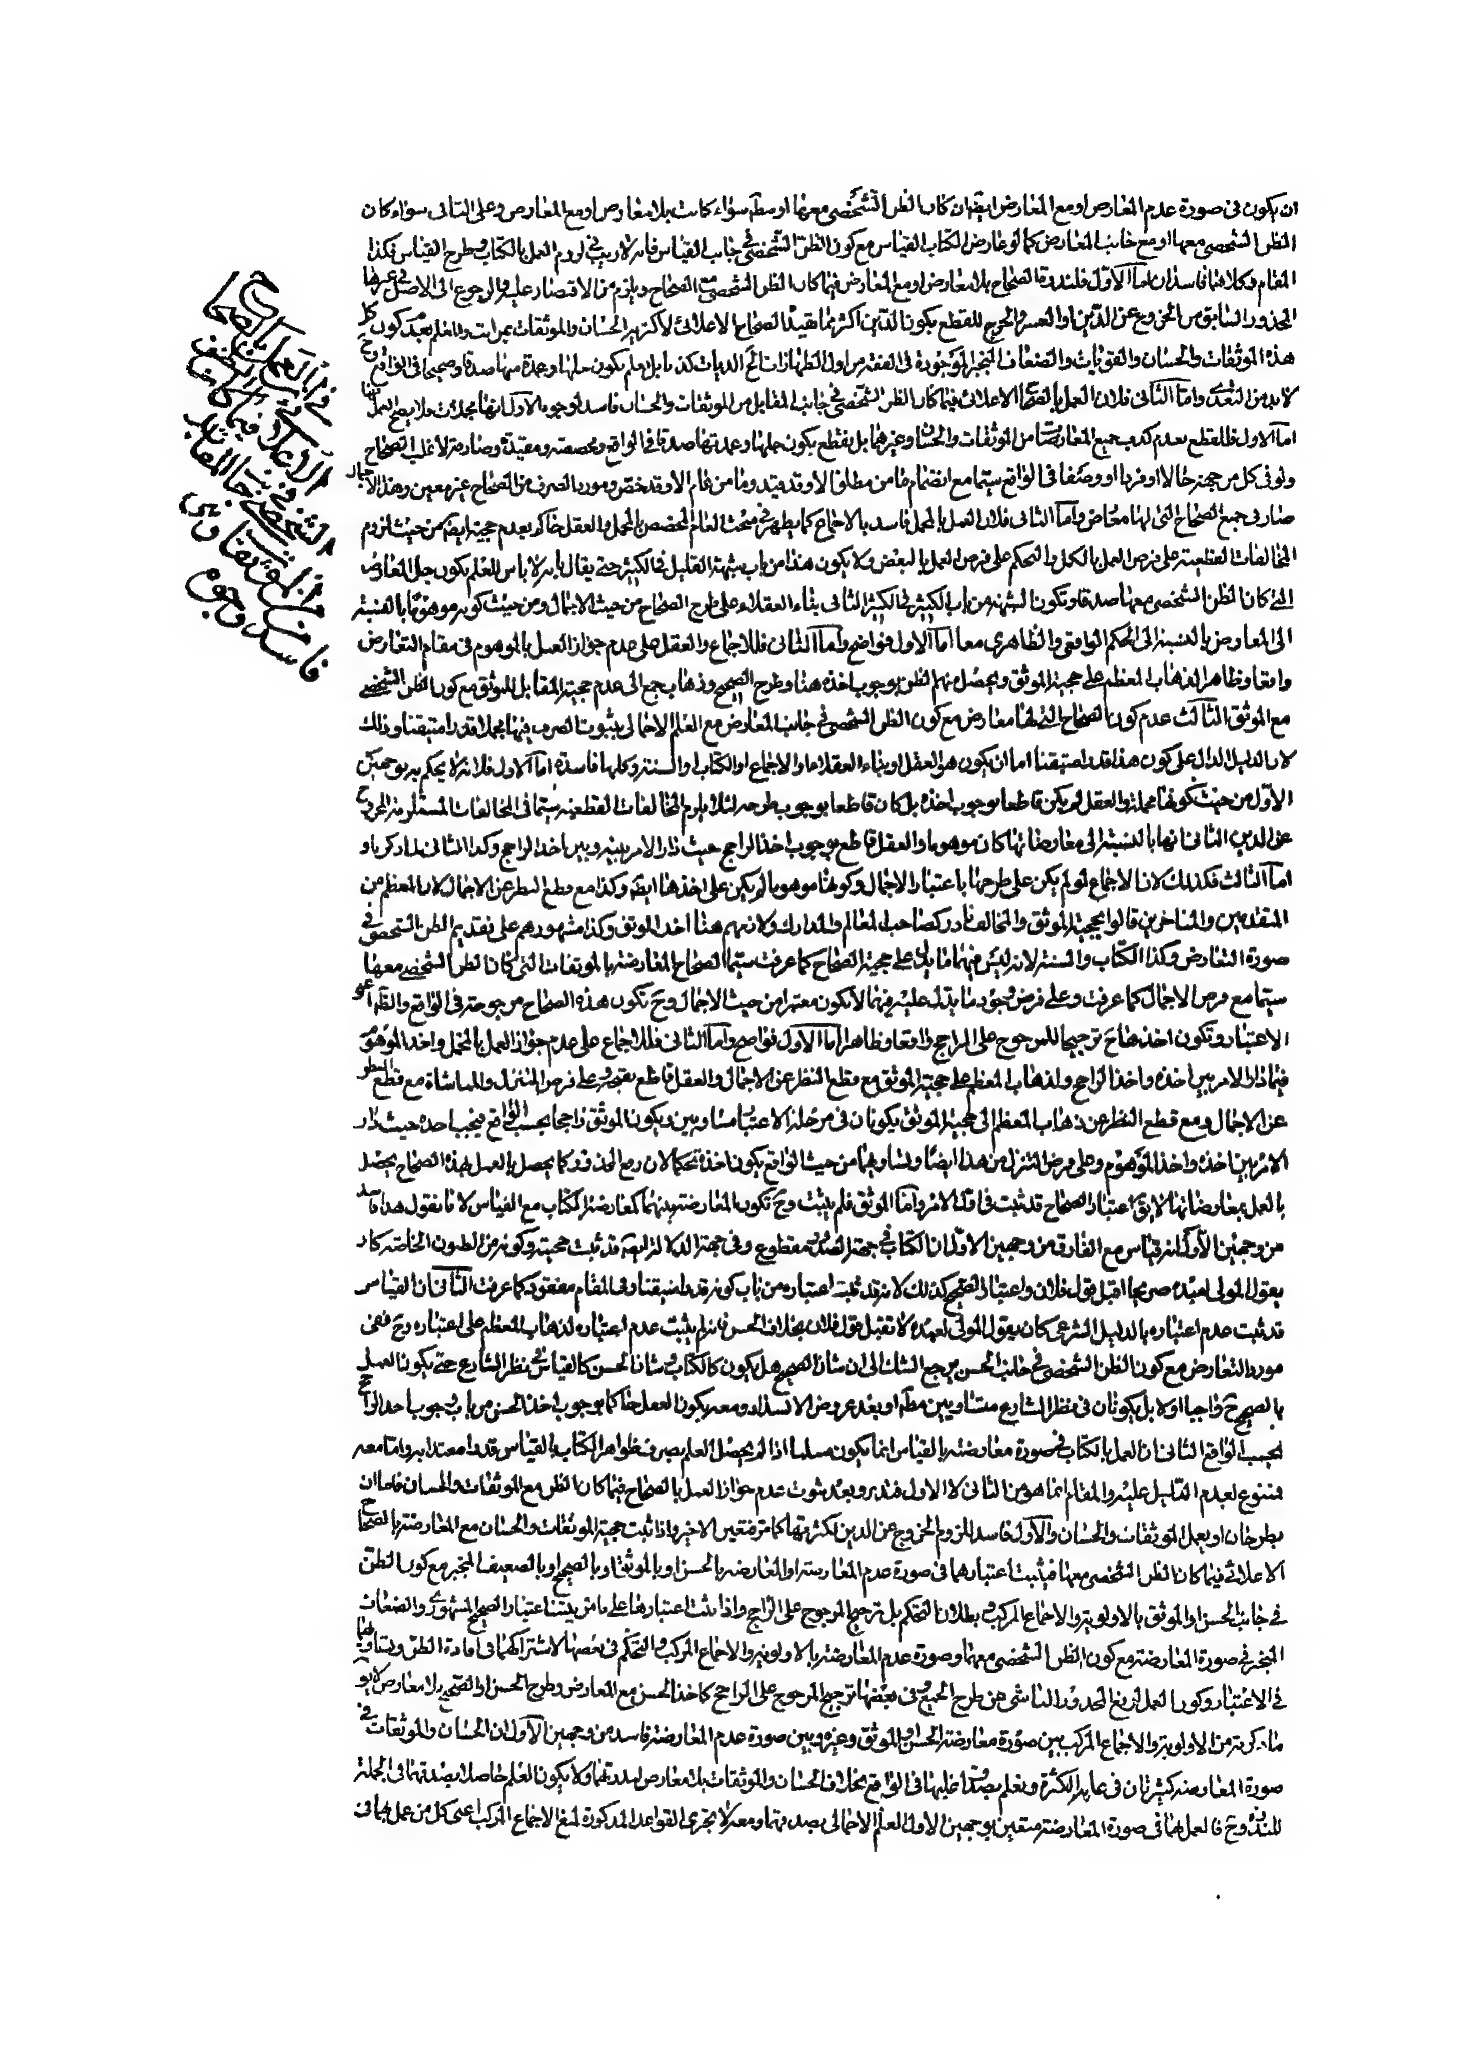 ان يكون فى صورة عدم المعارض او مع المعارض ايضا ان كان الظن الشخصى معها او مطلقا سواء كانت بلا معارض او مع المعارض وعلى الثانى سواء كان
الظن الشخصى معها او مع جانب المعارض كما لو عارض الكتاب القياس مع كون الظن الشخصى فى جانب القياس فانه لا ريب فى لزوم العمل بالكتاب وطرح القياس فكذا
المقام وكلاهما فاسدان اما الاول فلندرة الصحاح بلا معارض او مع المعارض فيما كان الظن الشخصى مع الصحاح ويلزم من الاقتصار عليه والرجوع الى الاصل فى غيرها
المحذور السابق من الخروج عن الدين او العسر والحرج للقطع بكون الدين اكثر مما هيهنا الصحاح الاعلائى لاكثرية الحسان والموثقات بمراتب وللعلم بعدم كون كل
هذه الموثقات والحسان والقويات والضعاف المنجبر الموجودة فى الفقه من اول الطهارات الى الديات كذبا بل نعلم بكون جلها وعدة منها صدقا وصحيحا فى الواقع وح
لا بد من التعدى واما الثانى فلان العمل بالصحاح الاعلائى فيما كان الظن الشخصى فى جانب المقابل من الموثقات والحسان فاسد لوجوه الاول انها مجملات فلا يصح العمل بها
اما الاول فللقطع بعدم كذب جميع المعارضات من الموثقات والحسان وغيرهما بل نقطع بكون جلها وعدة منها صدقا فى الواقع ومخصصة ومقيدة وصارفة لاغلب الصحاح
ولو فى كل من حجية حالا او فردا او وصفا فى الواقع سيما مع انضمام ما من مطلق الا وقد قيد وما من عام الا وقد خص ومورد الصرف من الصحاح غير معين وهذا الاجمال
صار فى جميع الصحاح التى لها معارض واما الثانى فلان العمل بالمجمل فاسد بالاجماع كما يظهر فى مبحث العام المخصص بالمجمل والعقل حاكم بعدم حجيته ايضا من حيث لزوم
المخالفات القطعية على فرض العمل بالكل والتحكم على فرض العمل بالبعض ولا يكون هذا من باب شبهة القليل فى الكثير حتى يقال بانه لا باس للعلم بكون جل المعارض
التى كان الظن الشخصى معها صدقا وتكون الشبهة من باب الكثير فى الكثير الثانى بناء العقلاء على طرح الصحاح من حيث الاجمال ومن حيث كونه موهوما بالنسبة
الى المعارض بالنسبة الى الحكم الواقعى والظاهرى معا اما الاول فواضح واما الثانى فللاجماع والعقل على عدم جواز العمل بالموهوم فى مقام التعارض
واقعا وظاهرا لذهاب المعظم على حجية الموثق ويحصل منهم الظن بوجوب اخذه هنا وطرح الصحيح وذهاب جمع الى عدم حجية المقابل للموثق مع كون الظن الشخصى
مع الموثق الثالث عدم كون الصحاح التى لها معارض مع كون الظن الشخصى فى جانب المعارض مع العلم الاجمالى بثبوت الصرف فيها مجملا قدرا متيقنا وذلك
لان الدليل الدال على كون هذا قدرا متيقنا اما ان يكون هو العقل او بناء العقلاء او الاجماع او الكتاب او السنة وكلها فاسدة اما الاول فلانه لا يحكم به بوجهين
الاول من حيث كونها مجملة والعقل لم يكن قاطعا بوجوب اخذه بل كان قاطعا بوجوب طرحه لئلا يلزم المخالفات القطعية سيما فى المخالفات المستلزمة للخروج
عن الدين الثانى انها بالنسبة الى معارضاتها كان موهوما والعقل قاطع بوجوب اخذ الراجح حيث دار الامر بينه وبين اخذ الراجح وكذا الثانى لما ذكر و
اما الثالث فكذلك لان الاجماع لو لم يكن على طرحها باعتبار الاجمال وكونها موهوما لم يكن على اخذها ايضا وكذا مع قطع النظر عن الاجمال لان المعظم من
المتقدمين والمتاخرين قالوا بحجية الموثق والمخالف نادر كصاحب المعالم والمدارك ولازمهم هنا اخذ الموثق وكذا مشهورهم على تقديم الظن الشخصى فى
صورة التعارض وكذا الكتاب والسنة لانه ليس فيهما ما يدل على حجية الصحاح كما عرفت سيما الصحاح المعارضة بالموثقات التى كان الظن الشخصى معها
سيما مع فرض الاجمال كما عرفت وعلى فرض وجود ما يدل عليه فيهما لا يكون معتبرا من حيث الاجمال وح تكون هذه الصحاح مرجوحة فى الواقع والظاهر اعنى
الاعتبار وتكون اخذها ح ترجيحا للمرجوح على الراجح واقعا وظاهرا اما الاول فواضح واما الثانى فللاجماع على عدم جواز العمل بالمجمل واخذ الموهوم
فيما دار الامر بين اخذه واخذ الراجح ولذهاب المعظم على حجية الموثق مع قطع النظر عن الاجمال والعقل قاطع بقبحه وعلى فرض التنزل والمماشاة مع قطع النظر
عن الاجمال ومع قطع النظر عن ذهاب المعظم الى حجية الموثق يكونان فى مرحلة الاعتبار متساويين ويكون الموثق راجحا بحسب الواقع فيجب اخذه حيث دار
الامر بين اخذه واخذ الموهوم وعلى فرض التنزل من هذا ايضا وتساويهما من حيث الواقع يكون اخذه تحكما لان رفع المحذور كما يحصل بالعمل بهذه الصحاح يحصل
بالعمل بمعارضاتها لا يق اعتبار الصحاح قد ثبت فى اول الامر واما الموثق فلم يثبت وح تكون المعارضة بينهما كمعارضة الكتاب مع القياس لانا نقول هذا فاسد
من وجهين الاول انه قياس مع الفارق من وجهين الاول ان الكتاب فى جهة الصدور مقطوع وفى جهة الدلالة ايضا قد ثبت حجيته وكونه من الظنون الخاصة كان
يقول المولى لعبده صريحا اقبل قول فلان واعتبار الصحيح كذلك لانه قد ثبت اعتباره من باب كونه قدرا متيقنا وفى المقام مفقود كما عرفت الثانى ان القياس
قد ثبت عدم اعتباره بالدليل الشرعى كان يقول المولى لعبده لا تقبل قول فلان بخلاف الحسن فانه لم يثبت عدم اعتباره لذهاب المعظم على اعتباره وح ففى
مورد التعارض مع كون الظن الشخصى فى جانب الحسن يرجع الشك الى ان شان الصحيح هل يكون كالكتاب وشان الحسن كالقياس فى نظر الشارع حتى يكون العمل
بالصحيح واجبا او لا بل يكونان فى نظر الشارع متساويين مطلقا او بعد عروض الانسداد ومعه يكون العقل حاكما بوجوب اخذ الحسن من باب وجوب اخذ الراجح
بحسب الواقع الثانى ان العمل بالكتاب فى صورة معارضته بالقياس انما يكون مسلما اذا لم يحصل العلم بصرف ظواهر الكتاب بالقياس قدرا معتدا به واما معه
فممنوع لعدم الدليل عليه والمقام انما هو من الثانى لا الاول فتدبر وبعد ثبوت عدم جواز العمل بالصحاح فيما كان الظن مع الموثقات والحسان فاما ان
يطرحان او يعمل الموثقات والحسان والاول فاسد للزوم الخروج عن الدين لكثرتهما كما مر فتعين الاخير واذا ثبت حجية الموثقات والحسان مع المعارضة بالصحاح
الاعلائى فيما كان الظن الشخصى معهما فيثبت اعتبارهما فى صورة عدم المعارضة او المعارضة بالحسن او بالموثق او بالصحيح او بالضعيف المنجبر مع كون الظن
فى جانب الحسن او الموثق بالاولوية والاجماع المركب وبطلان التحكم بل ترجيح المرجوح على الراجح واذا ثبت اعتبارها على ما مر يثبت اعتبار الصحيح المشهورى والضعاف
المنجبر فى صورة المعارضة مع كون الظن الشخصى معهما وصورة عدم المعارضة بالاولوية والاجماع المركب والتحكم فى بعضها لاشتراكهما فى افادة الظن وتساويهما
فى الاعتبار وكون العمل لرفع المحذور الناشى من طرح الجميع وفى بعضها ترجيح المرجوح على الراجح كاخذ الحسن مع المعارض وطرح الحسن او الصحيح بلا معارض لا يق
ما ذكرته من الاولوية والاجماع المركب بين صورة معارضة الحسن او الموثق وغيره وبين صورة عدم المعارضة فاسد من وجهين الاول ان الحسان والموثقات فى
صورة المعارضة كثيرتان فى غاية الكثرة ونعلم بصدق اغلبها فى الواقع بخلاف الحسان والموثقات بلا معارض لندرتهما ولا يكون العلم حاصلا بصدقهما فى الجملة
للندرة وح فالعمل بهما فى صورة المعارضة متعين بوجهين الاول العلم الاجمالى بصدقهما ومعه لا يجرى القواعد المذكورة لمنع الاجماع المركب اعنى كل من عمل بهما فى